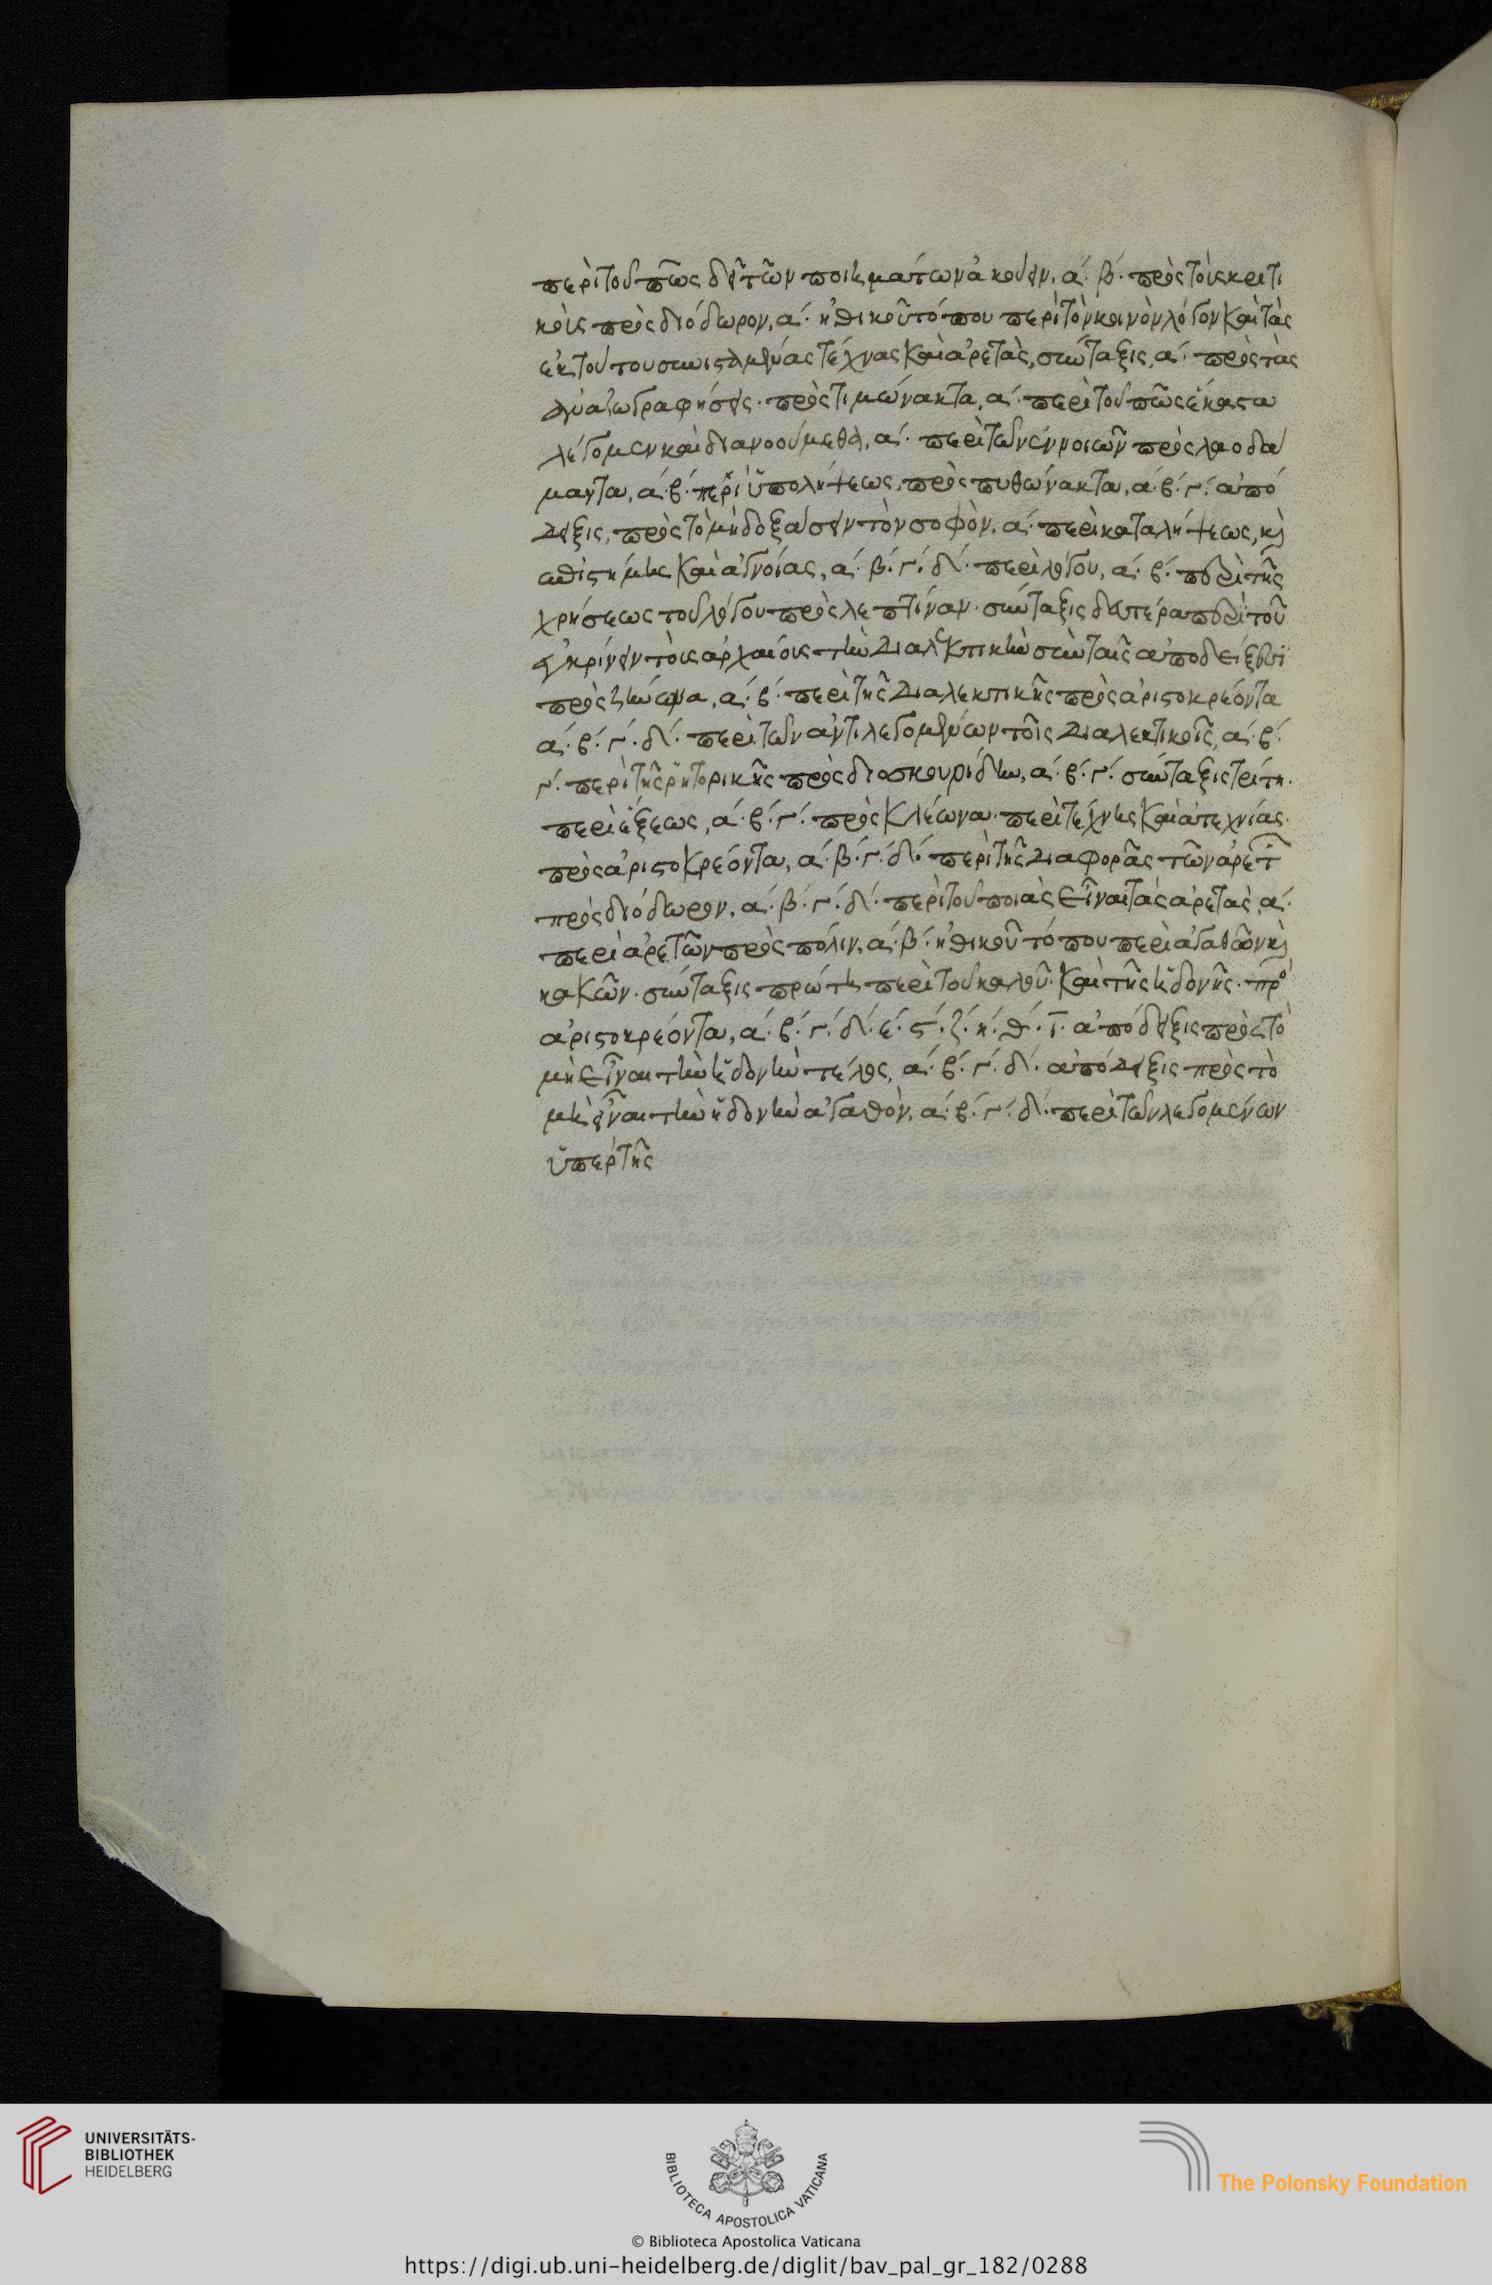 περὶ τοῦ πῶς δεῖ τῶν ποιημάτων ἀκούειν, α´. β´. πρὸς τοὺς κριτι
κοὺς πρὸς διόδωρον, α´. ἠθικοῦ τόπου περὶ τὸν κοινὸν λόγον καὶ τὰς
ἐκ τούτου συνισταμένας τέχνας καὶ ἀρετὰς, σύνταξις, α´. πρὸς τὰς
ἀναζωγραφήσεις. πρὸς τιμώνακτα, α´. περὶ τοῦ πῶς ἕκαστα
λέγομεν καὶ διανοούμεθα, α´. περὶ τῶν ἐννοιῶν πρὸς λαοδά
μαντα, α´. β´. περὶ ὑπολήψεως, πρὸς πυθώνακτα, α´. β´. γ´. ἀπό
δειξις, πρὸς τὸ μὴ δοξάσειν τὸν σοφὸν, α´. περὶ καταλήψεως, κὶ
ἐπιστήμης καὶ ἀγνοίας, α´. β´. γ´. δ´. περὶ λόγου, α´. β´. περὶ τῆς
χρήσεως τοῦ λόγου πρὸς λεπτίναν. σύνταξις δευτέρα περὶ τοῦ
ἐγκρίνειν τοὺς ἀρχαίους τὴν διαλεκτικὴν σὺν ταῖς ἀποδείξεσι
πρὸς ζήνωνα, α´. β´. περὶ τῆς διαλεκτικῆς πρὸς ἀριστοκρέοντα
α´. β´. γ´. δ´. περὶ τῶν ἀντιλεγομένων τοῖς διαλεκτικοῖς, α´. β´.
γ´. περὶ τῆς ῥητορικῆς πρὸς διοσκουρίδην, α´. β´. γ´. σύνταξις τρίτη.
περὶ ἕξεως, α´. β´. γ´. πρὸς κλέωνα. περὶ τέχνης καὶ ἀτεχνίας.
πρὸς ἀριστοκρέοντα, α´. β´. γ´. δ´. περὶ τῆς διαφορᾶς τῶν ἀρετ
πρὸς διόδωρον, α´. β´. γ´. δ´. περὶ τοῦ ποιὰς εἶναι τὰς ἀρετὰς, α´.
περὶ ἀρετῶν πρὸς πόλιν, α´. β´. ἠθικοῦ τόπου περὶ ἀγαθῶν κὶ
κακῶν. σύνταξις πρώτη περὶ τοῦ καλοῦ. καὶ τῆς ἡδονῆς. πρὸ
ἀριστοκρέοντα, α´. β´. γ´. δ´. ε´. ϛ´. ζ´. η´. θ´. ι´. ἀπόδειξις πρὸς τὸ
μὴ εἶναι τὴν ἡδονὴν τέλος, α´. β´. γ´. δ´. ἀπόδειξις πρὸς τὸ
μὴ εἶναι τὴν ἡδονὴν ἀγαθὸν, α´. β´. γ´. δ´. περὶ τῶν λεγομένων
ὑπὲρ τῆς
UNIVERSITÄTS-
BIBLIOTHEK
HEIDELBERG
BIBLIOTECA APOSTOLICA VATICANA
The Polonsky Foundation
© Biblioteca Apostolica Vaticana
https://digi.ub.uni-heidelberg.de/diglit/bav_pal_gr_182/0288